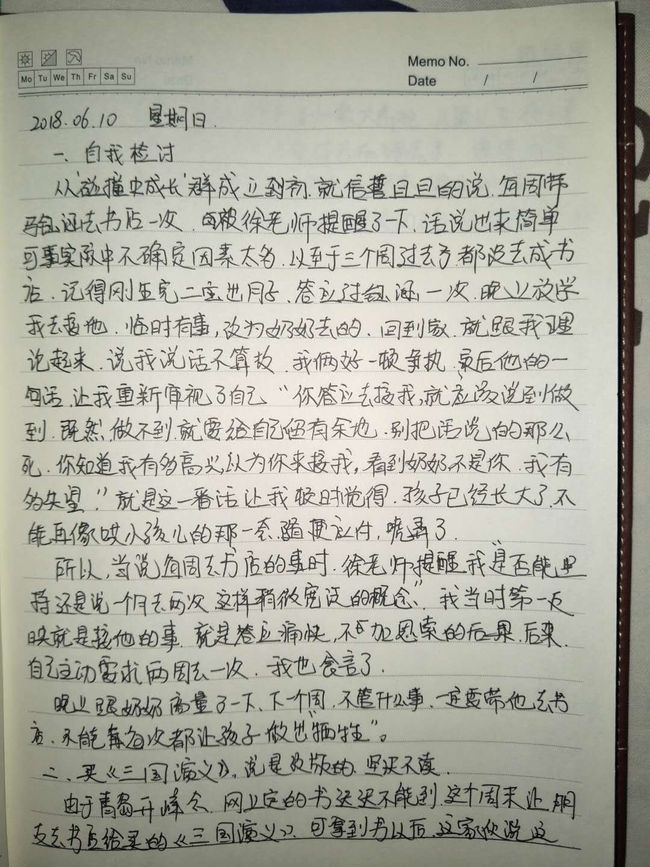 Memo No.
Mo Tu We Th Fr Sa Su
Date / /
2018.06.10 星期日.
一、自我检讨
从“碰撞中成长”群成立到前.就信誓旦旦的说.每周带
铭涵去书店一次.被徐老师提醒了一下.话说也来简单
可事实际中不确定因素太多.以至于三个周过去了都没去成书
店.记得刚坐完二宝出月子.答应过铭涵一次.晚上放学
我去接他.临时有事,改为奶奶去的.回到家.就跟我理
论起来.说我说话不算数.我俩好一顿争执.最后他的一
句话.让我重新审视了自己“你答应去接我,就应该说到做
到.既然,做不到.就要给自己留有余地.别把话说的那么
死.你知道我有多高兴,以为你来接我,看到奶奶不是你.我有
多失望!”就是这一番话让我顿时觉得.孩子已经长大了.不
能再像哄小孩儿的那一套.随便应付,唬弄了.
所以,当说每周去书店的事时.徐老师提醒我“是否能坚
持还是说一个月去两次 这样稍微宽泛的概念”.我当时第一反
映就是接他的事.就是答应痛快,不加思索的后果.后来.
自己主动要求两周去一次.我也食言了.
晚上跟奶奶商量了一下、下个周.不管什么事.一定要带他去书
店.不能再每次都让孩子做出“牺牲”。
二、买《三国演义》,说是改版的.坚决不读.
由于青岛开峰会.网上定的书迟迟不能到.这个周末让朋
友去书店给买的《三国演义》.可拿到书以后.这家伙说这